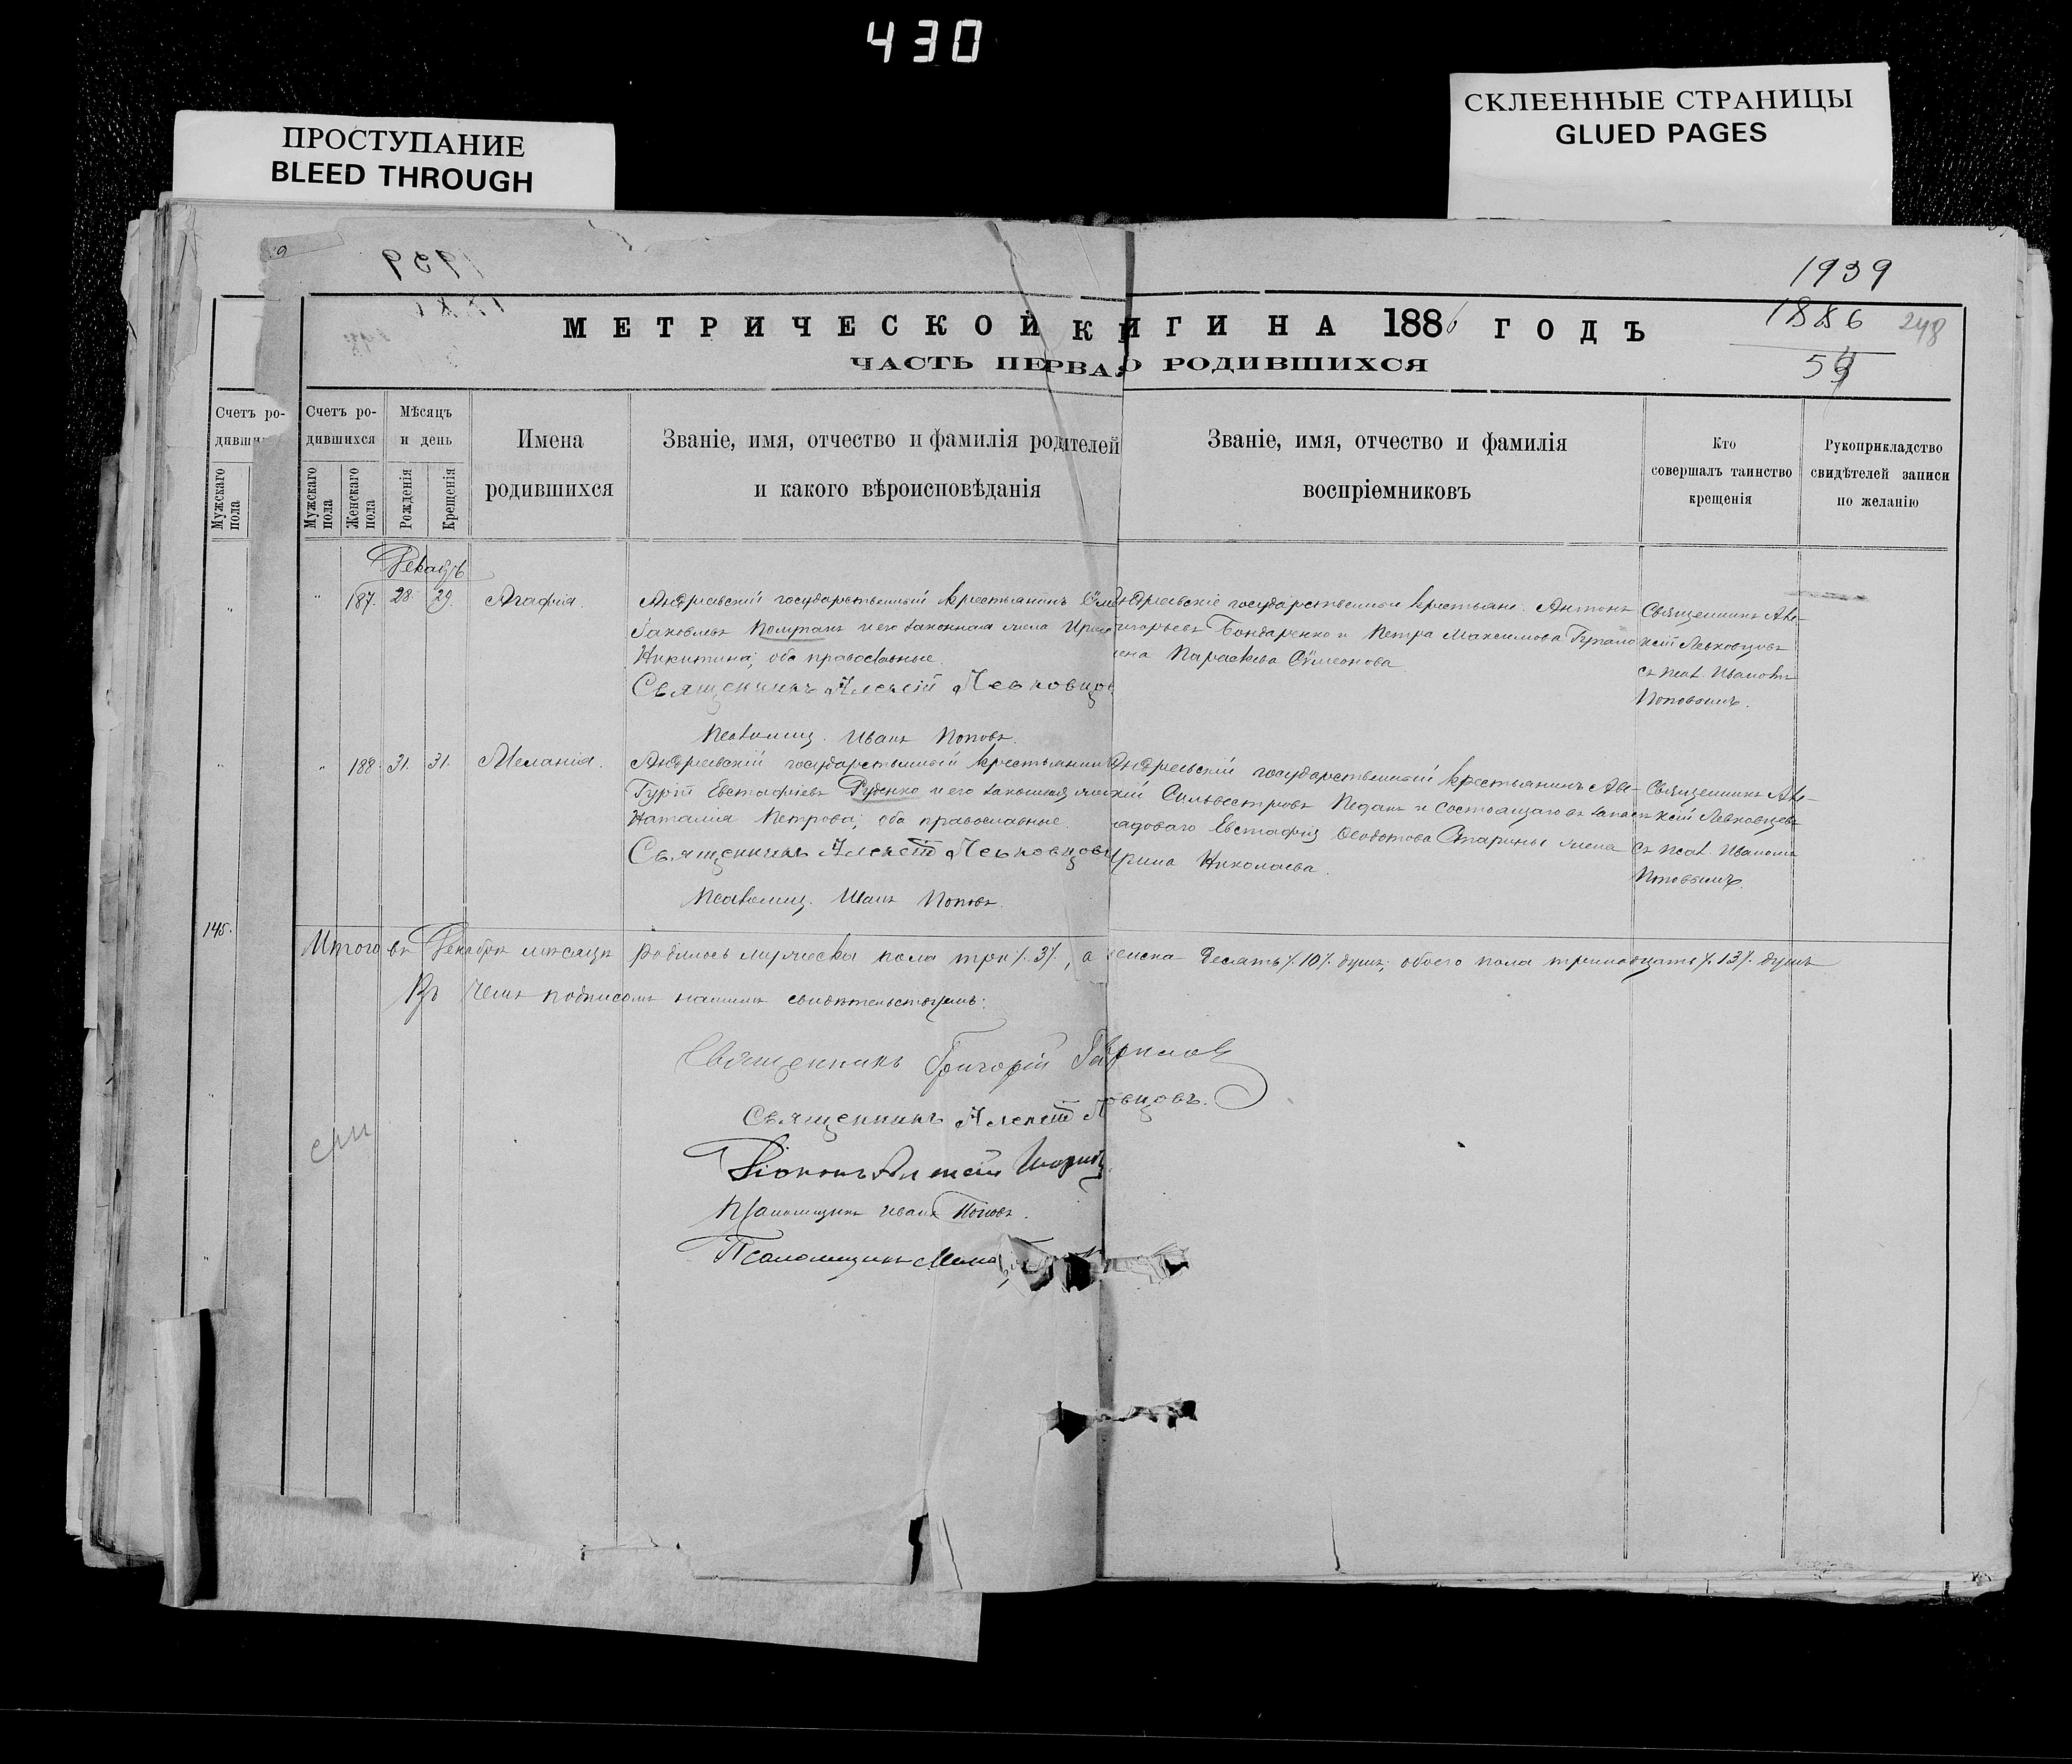 430
ПРОСТУПАНИЕ
BLEED THROUGH
СКЛЕЕННЫЕ СТРАНИЦЫ
GLUED PAGES
1939
1886
248
МЕТРИЧЕСКОЙ КНИГИ НА 1886 ГОДЪ
ЧАСТЬ ПЕРВАЯ О РОДИВШИХСЯ
Счетъ ро-
Мужскаго пола
Счетъ ро-
дившихся
Мужскаго пола
Женскаго пола
Мѣсяцъ
и день
Рожденія
Крещенія
Имена
родившихся
Званіе, имя, отчество и фамилія родителей
и какого вѣроисповѣданія
Званіе, имя, отчество и фамилія
воспріемниковъ
Кто
совершалъ таинство
крещенія
Рукоприкладство
свидѣтелей записи
по желанію
Декабрь
187. 28. 29. Агафія.
Андреевскій государственный крестьянинъ
Яковлевъ и его законная жена
Никитина, оба православные.
Священникъ Алексій Левковцов
Псаломщ. Иванъ Поповъ.
Андреевскіе государственные крестьяне: Антонъ
Бондаренко и Петра Максимова
Параскева Сѵмеонова
Священникъ Але-
ксій Левковцовъ
съ псал. Иваномъ
Поповымъ.
188. 31. 31. Меланія.
Андреевскій государственный крестьянинъ
Гурій Евстафіевъ Руденко и его законная жена
Наталія Петрова, оба православные.
Священникъ Алексій Левковцовъ
Псаломщ. Иванъ Поповъ.
Андреевскій государственный крестьянинъ Але-
ксій Сильвестровъ Педанъ и состоящаго въ запасѣ
Евстафія Ѳеодотова Старины жена
Ирина Николаева.
Священникъ Але-
ксій Левковцевъ
съ псал. Иваномъ
Поповымъ.
145.
Итого въ Декабрѣ мѣсяцѣ родилось мужеска пола три /.3/., а женска десять /.10/. душъ, обоего пола тринадцать /.13/. душъ
Въ чемъ подписомъ нашимъ свидѣтельствуемъ:
Священникъ Григорій
Священникъ Алексій
овцовъ.
Діаконъ Алексій
Псаломщикъ Иванъ Поповъ.
Псаломщикъ